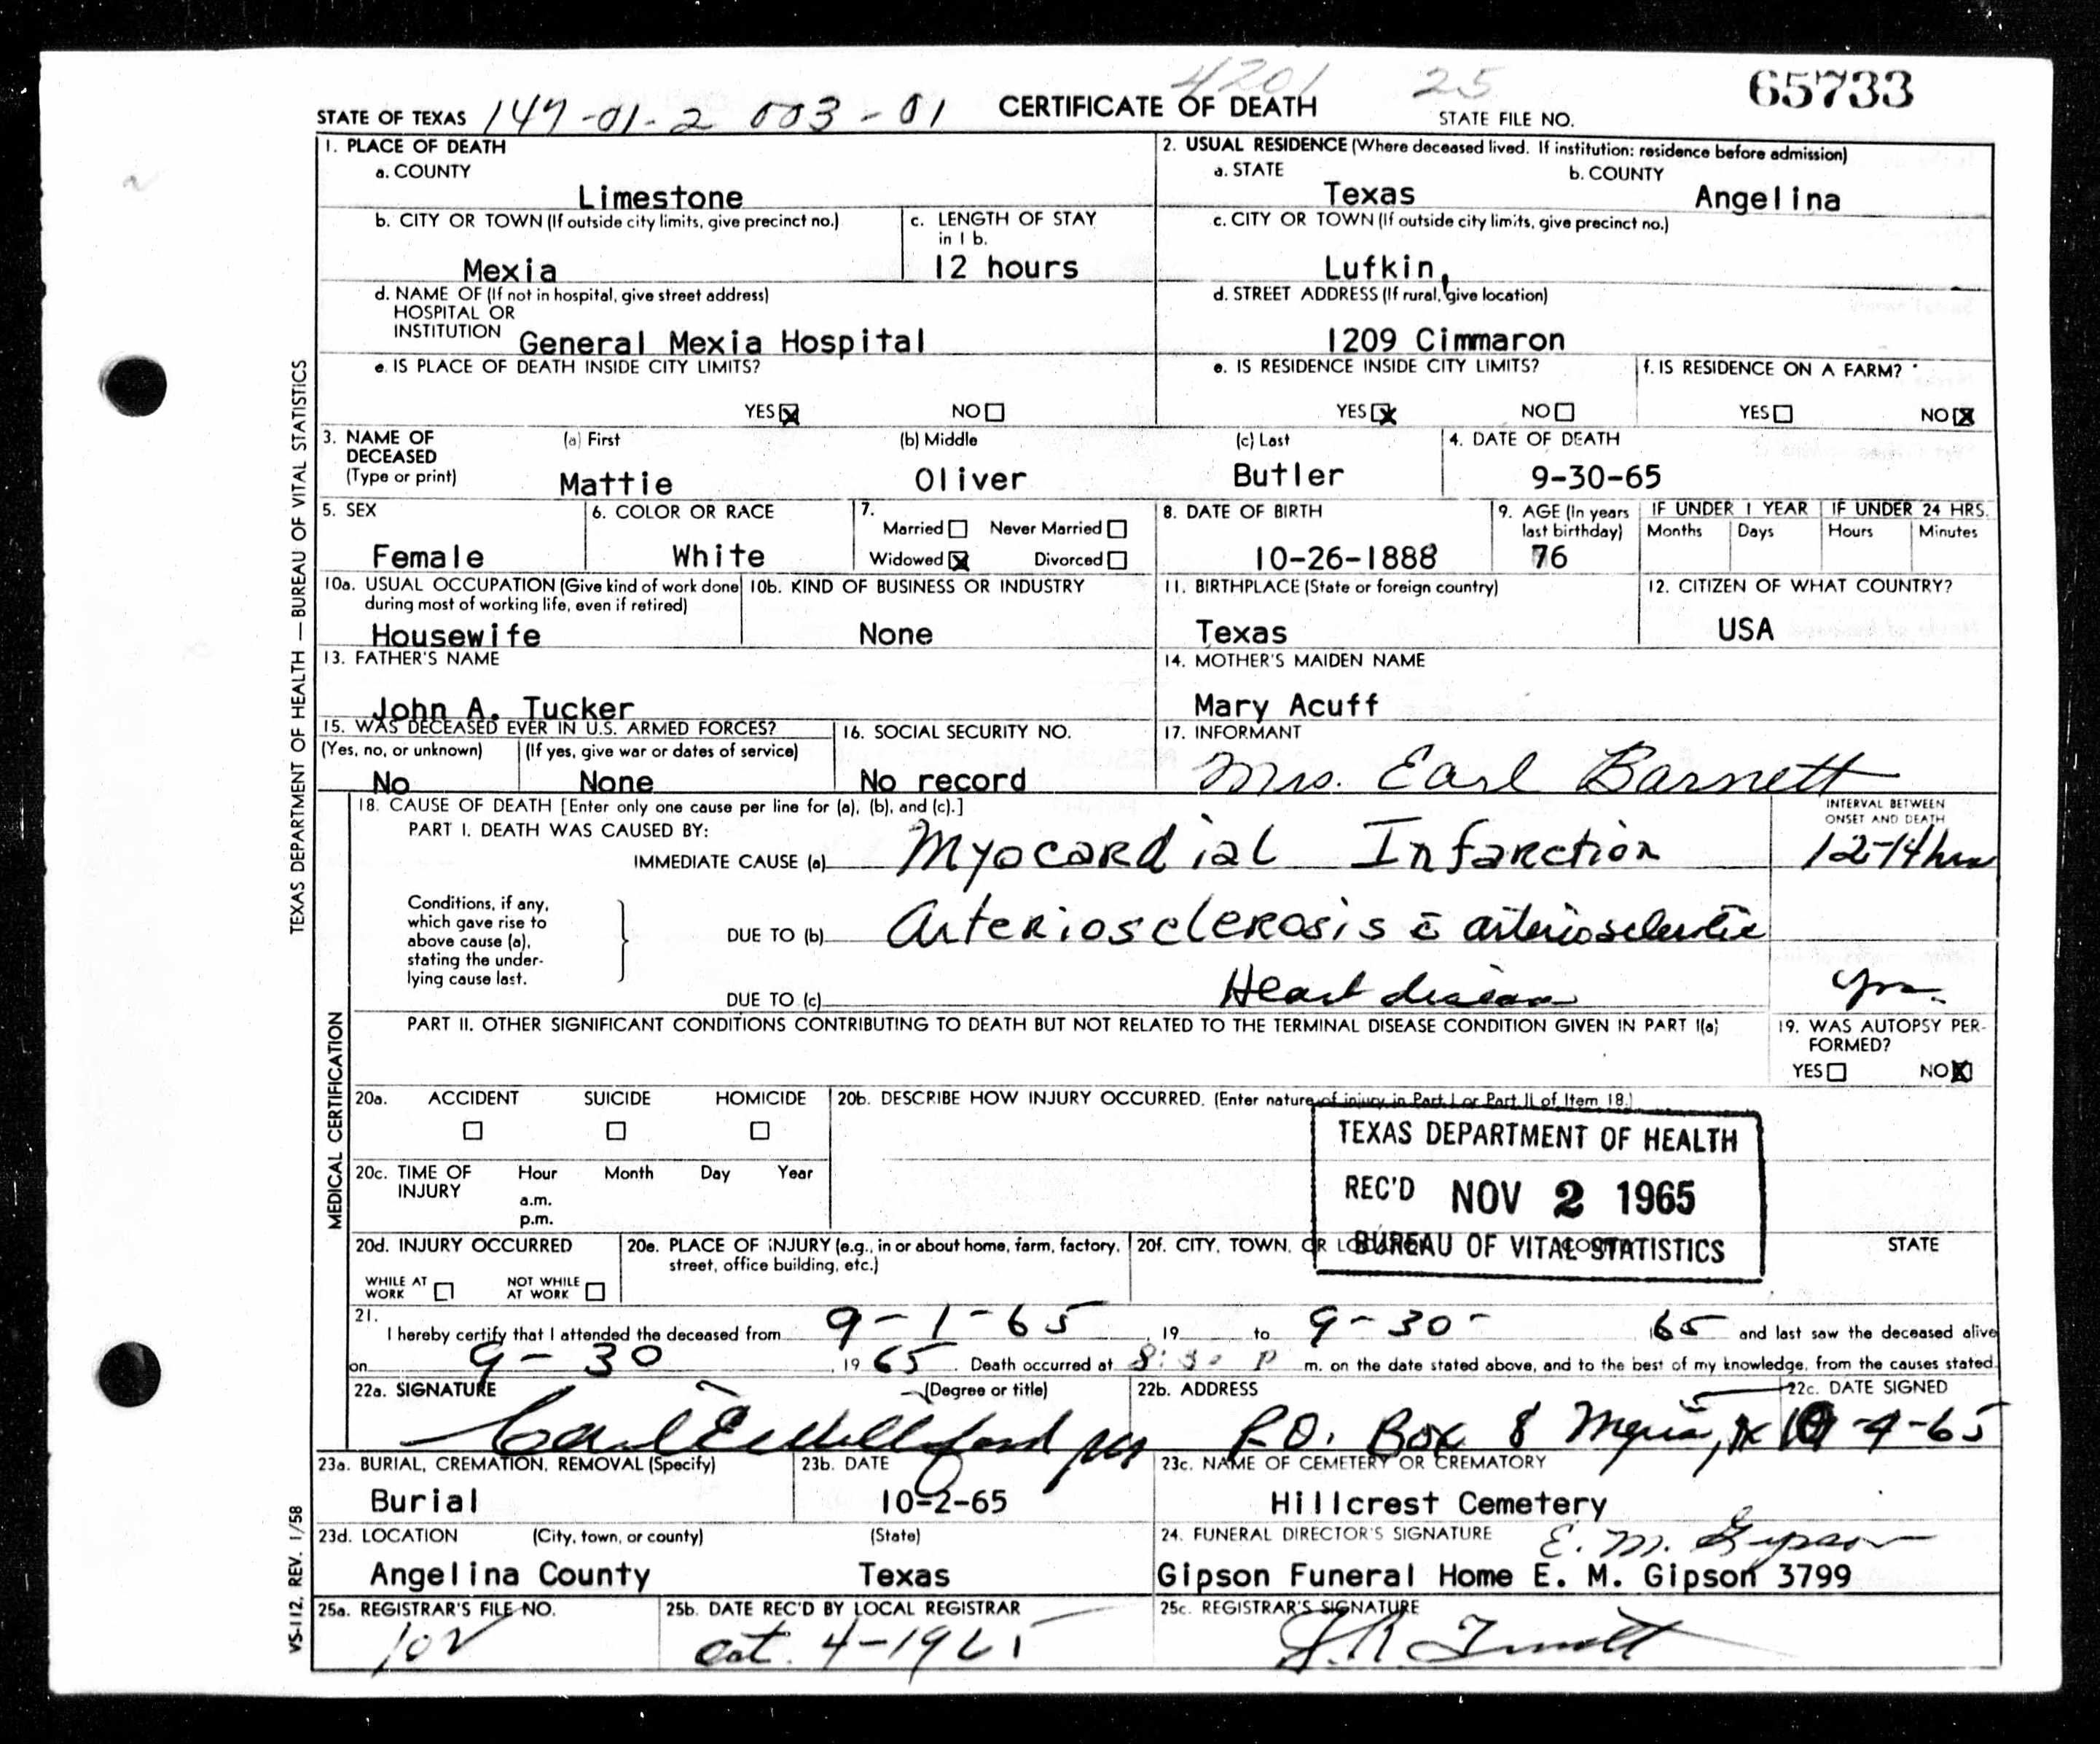 4201 25 65733
STATE OF TEXAS 147-01-2 003-01 CERTIFICATE OF DEATH STATE FILE NO.
1. PLACE OF DEATH
a. COUNTY
Limestone
2. USUAL RESIDENCE (Where deceased lived. If institution: residence before admission)
a. STATE b. COUNTY
Texas Angelina
b. CITY OR TOWN (If outside city limits, give precinct no.)
Mexia
c. LENGTH OF STAY
in 1 b.
12 hours
c. CITY OR TOWN (If outside city limits, give precinct no.)
Lufkin,
d. NAME OF (If not in hospital, give street address)
HOSPITAL OR
INSTITUTION General Mexia Hospital
d. STREET ADDRESS (If rural, give location)
1209 Cimmaron
e. IS PLACE OF DEATH INSIDE CITY LIMITS?
YES NO
e. IS RESIDENCE INSIDE CITY LIMITS?
YES NO
f. IS RESIDENCE ON A FARM?
YES NO
3. NAME OF
DECEASED
(Type or print)
(a) First (b) Middle (c) Last
Mattie Oliver Butler
4. DATE OF DEATH
9-30-65
5. SEX
Female
6. COLOR OR RACE
White
7.
Married Never Married
Widowed Divorced
8. DATE OF BIRTH
10-26-1888
9. AGE (In years
last birthday)
76
IF UNDER 1 YEAR
Months Days
IF UNDER 24 HRS.
Hours Minutes
10a. USUAL OCCUPATION (Give kind of work done
during most of working life, even if retired)
Housewife
10b. KIND OF BUSINESS OR INDUSTRY
None
11. BIRTHPLACE (State or foreign country)
Texas
12. CITIZEN OF WHAT COUNTRY?
USA
13. FATHER'S NAME
John A. Tucker
14. MOTHER'S MAIDEN NAME
Mary Acuff
15. WAS DECEASED EVER IN U.S. ARMED FORCES?
(Yes, no, or unknown) (If yes, give war or dates of service)
No None
16. SOCIAL SECURITY NO.
No record
17. INFORMANT
Mrs. Earl Barnett
18. CAUSE OF DEATH [Enter only one cause per line for (a), (b), and (c).]
PART I. DEATH WAS CAUSED BY:
IMMEDIATE CAUSE (a) Myocardial Infarction
INTERVAL BETWEEN
ONSET AND DEATH
12-14 hrs
Conditions, if any,
which gave rise to
above cause (a),
stating the under-
lying cause last.
DUE TO (b) Arteriosclerosis c̄ arteriosclerotic
DUE TO (c) Heart disease yrs.
PART II. OTHER SIGNIFICANT CONDITIONS CONTRIBUTING TO DEATH BUT NOT RELATED TO THE TERMINAL DISEASE CONDITION GIVEN IN PART I(a)
19. WAS AUTOPSY PER-
FORMED?
YES NO
20a. ACCIDENT SUICIDE HOMICIDE
20b. DESCRIBE HOW INJURY OCCURRED. (Enter nature of injury in Part I or Part II of Item 18.)
TEXAS DEPARTMENT OF HEALTH
REC'D NOV 2 1965
BUREAU OF VITAL STATISTICS
20c. TIME OF
INJURY
Hour Month Day Year
a.m.
p.m.
20d. INJURY OCCURRED
WHILE AT
WORK
NOT WHILE
AT WORK
20e. PLACE OF INJURY (e.g., in or about home, farm, factory,
street, office building, etc.)
20f. CITY, TOWN, OR STATE
21.
I hereby certify that I attended the deceased from 9-1-65, 19 to 9-30- 65 and last saw the deceased alive
on 9-30, 19 65. Death occurred at 8:30 p m. on the date stated above, and to the best of my knowledge, from the causes stated.
22a. SIGNATURE (Degree or title)
22b. ADDRESS
P.O. Box 8 Mexia, Tx
22c. DATE SIGNED
10-4-65
23a. BURIAL, CREMATION, REMOVAL (Specify)
Burial
23b. DATE
10-2-65
23c. NAME OF CEMETERY OR CREMATORY
Hillcrest Cemetery
23d. LOCATION (City, town, or county) (State)
Angelina County Texas
24. FUNERAL DIRECTOR'S SIGNATURE E. M. Gipson
Gipson Funeral Home E. M. Gipson 3799
25a. REGISTRAR'S FILE NO.
102
25b. DATE REC'D BY LOCAL REGISTRAR
Oct. 4-1965
25c. REGISTRAR'S SIGNATURE
TEXAS DEPARTMENT OF HEALTH — BUREAU OF VITAL STATISTICS
MEDICAL CERTIFICATION
VS-112, REV. 1/58